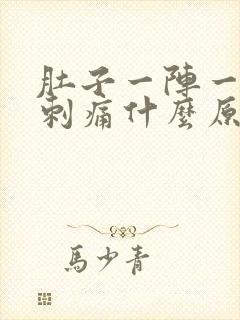 肚子一陣一
刺痛什麼原
馬少青